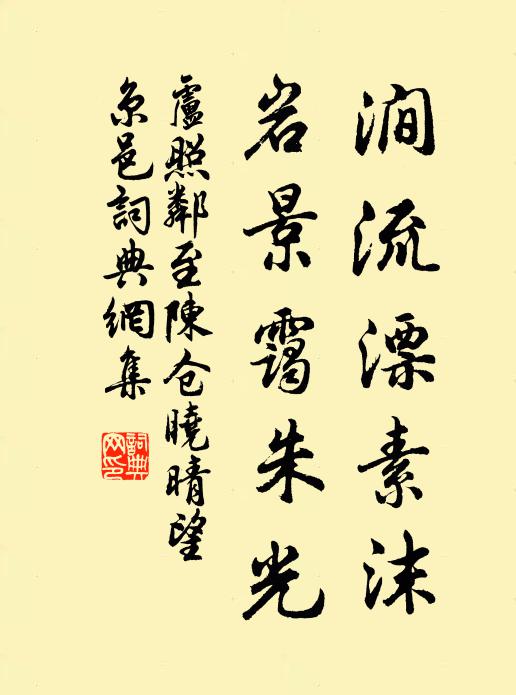 澗流漂素沫
岩景靄朱光
盧照鄰至陳仓曉晴望
京邑詞典網集
詞典
网印